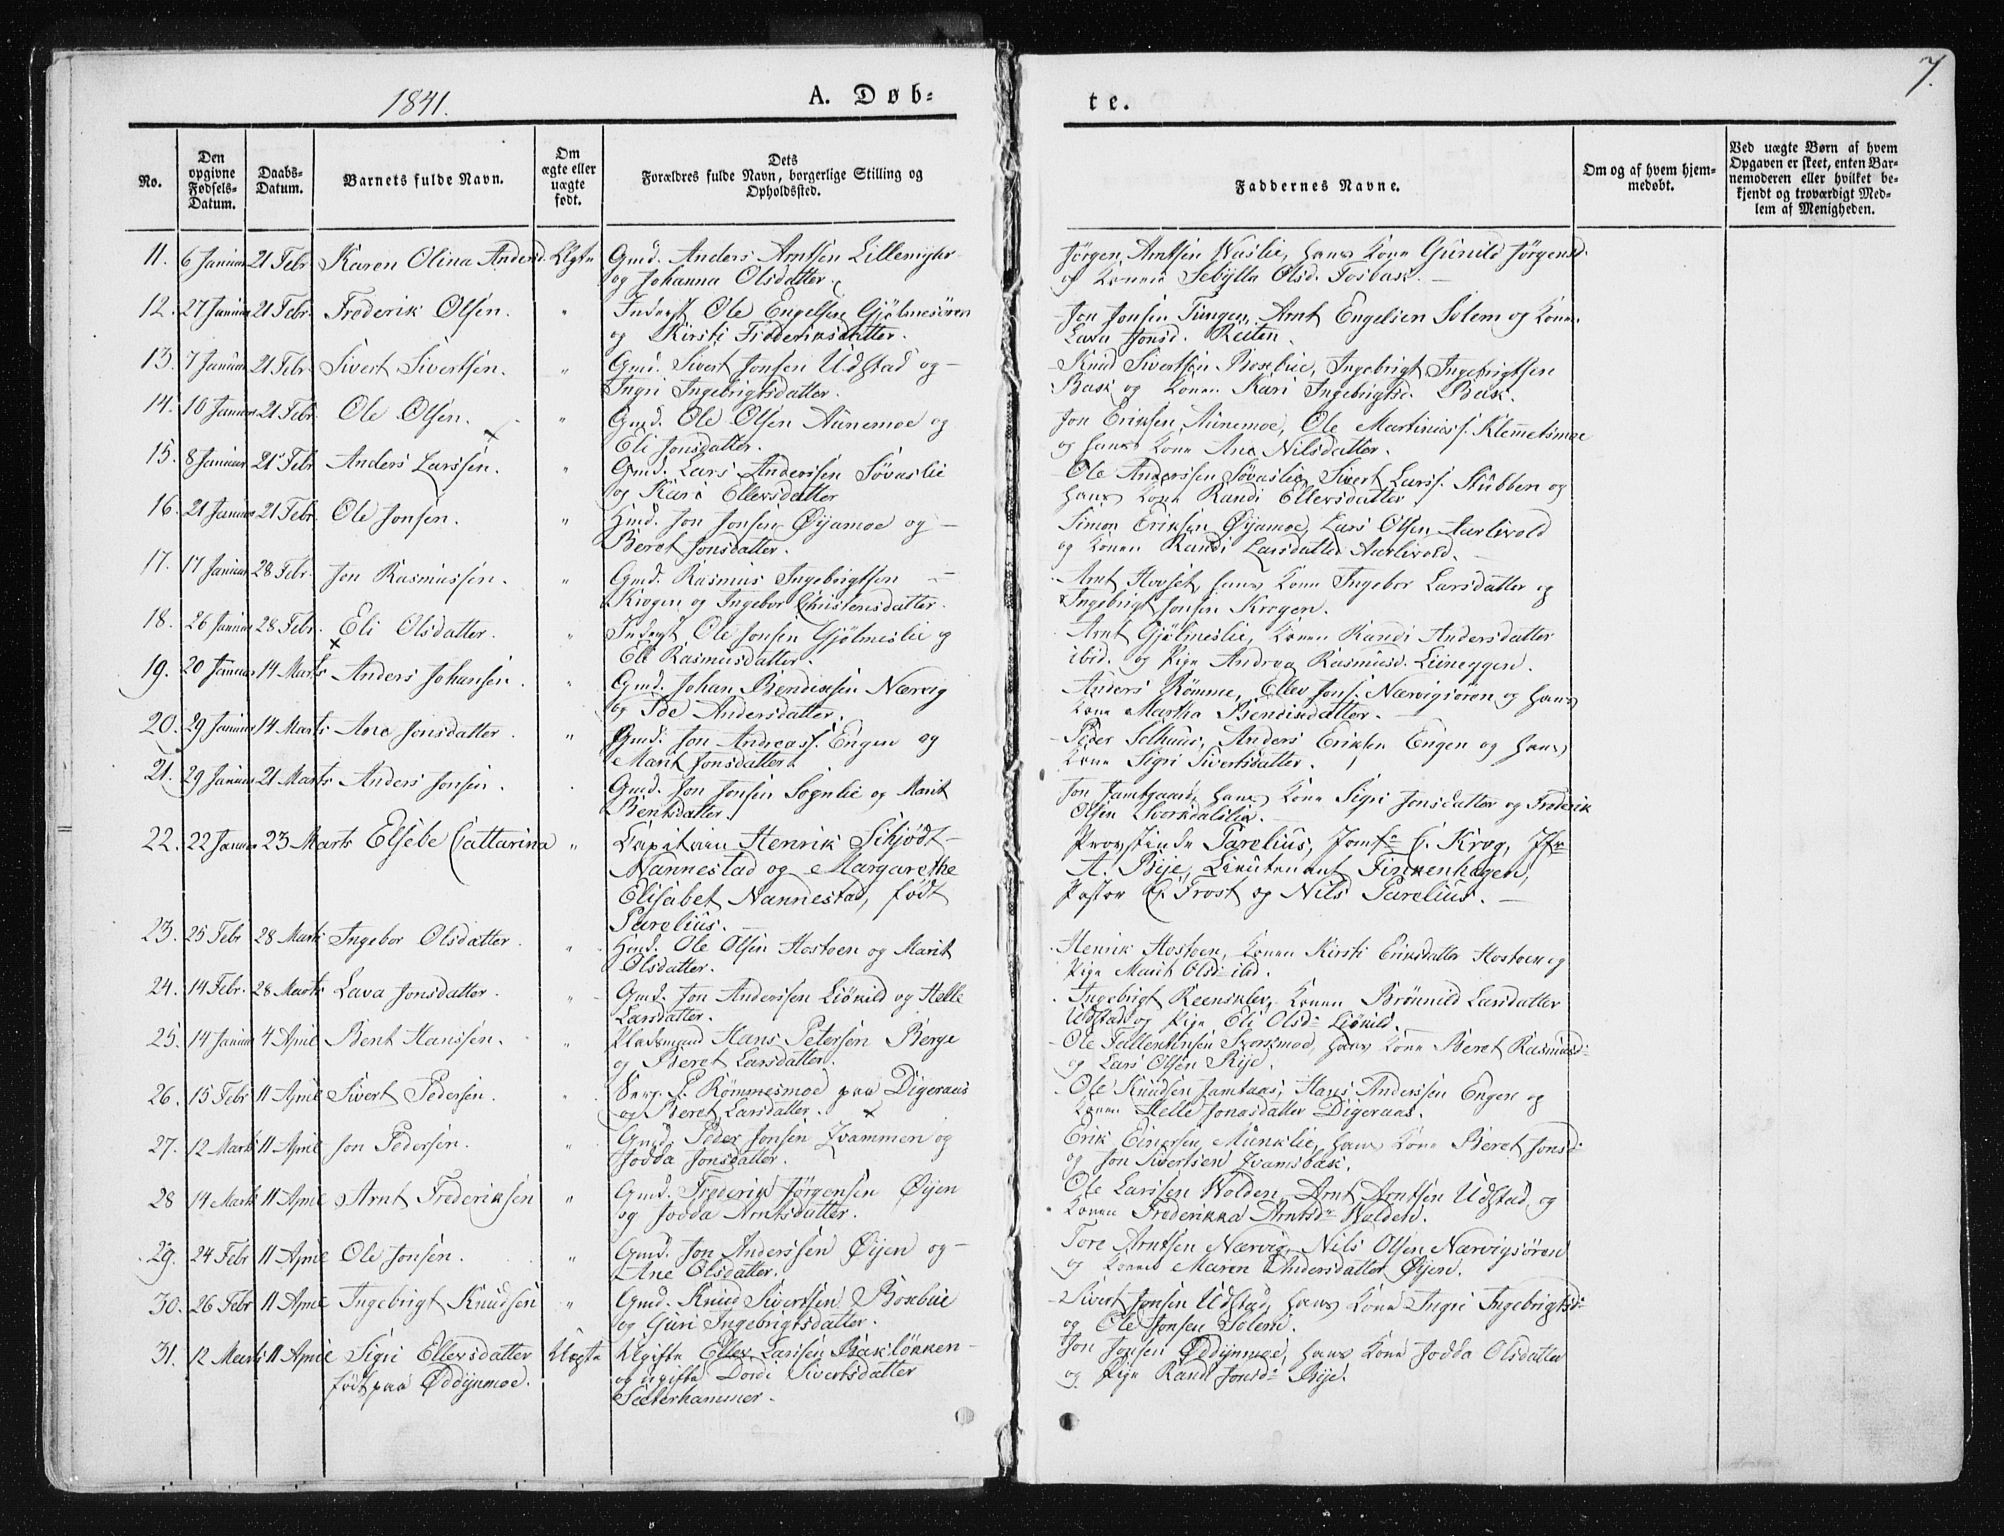 1841.
A. Døb-
te.
7.
No.
Den opgivne Fødsels-Datum.
Daabs-Datum.
Barnets fulde Navn.
Om ægte eller uægte født.
Dets Forældres fulde Navn, borgerlige Stilling og Opholdssted.
Faddernes Navne.
Om og af hvem hjemmedøbt.
Ved uægte Børn af hvem Opgaven er skeet, enten Barnemoderen eller hvilket bekjendt og troværdigt Medlem af Menigheden.
11. 6 Januar 21 Febr. Karen Olina Andersd. Ægte Gmd. Anders Arntsen
og Johanna Olsdatter.
Jørgen Arntsen Waslie, hans Kone Gunild Jørgensd.
og Konen Sebylla Olsd. Fosbak.
12. 27 Januar 21 Febr. Frederik Olsen. " Inderst Ole Engelsen Gjølmesøren
og Kirsti Frederiksdatter.
Jon Jonsen Tungen, Arnt Engelsen Solem og Konen
Lava Jonsd. Reiten.
13. 7 Januar 21 Febr. Sivert Sivertsen. " Gmd. Sivert Jonsen Udstad og
Ingri Ingebrigtsdatter.
Knud Sivertsen Boxbue, Ingebrigt Ingebrigtsen
Bask og Konen Kari Ingebrigtsd. Bask.
14. 10 Januar 21 Febr. Ole Olsen. " Gmd. Ole Olsen Aunemoe og
Eli Jonsdatter.
Jon Eriksen Aunemoe, Ole Martinuss. Klemetsmoe
og hans Kone Ane Nilsdatter.
15. 8 Januar 21 Febr. Anders Larssen. " Gmd. Lars Anderssen Søvaslie
og Kari Ellevsdatter
Ole Anderssen Søvaslie, Sivert Larss. Stubben og
hans Kone Randi Ellevsdatter
16. 21 Januar 21 Febr. Ole Jonsen. " Hmd. Jon Jonsen Øyamoe og
Beret Jonsdatter.
Simon Eriksen Øyamoe, Lars Olsen Aarlivold
og Konen Randi Larsdatter Aarlivold.
17. 17 Januar 28 Febr. Jon Rasmussen. " Gmd. Rasmus Ingebrigtsen
Krogen og Ingebor Christensdatter.
Arnt Hovset, hans Kone Ingebor Larsdatter og
Ingebrigt Jonsen Krogen.
18. 26 Januar 28 Febr. Eli Olsdatter. " Inderst Ole Jonsen Gjølmeslie og
Eli Rasmusdatter.
Arnt Gjølmeslie, Konen Randi Andersdatter
ibid. og Pige Andrea Rasmusd.
19. 20 Januar 14 Marts Anders Johansen. " Gmd. Johan Bendixsen Nærvig
og Ide Andersdatter.
Anders Rømme, Ellev Jons. Nærvigsøren og hans
Kone Martha Bendixdatter.
20. 29 Januar 14 Marts Ane Jonsdatter. " Gmd. Jon Andreass. Engen og
Marit Jonsdatter.
Peder Solhuus, Anders Eriksen Engen og hans
Kone Sigri Sivertsdatter.
21. 29 Januar 21 Marts Anders Jonsen. Gmd. Jon Jonsen Sognlie og Marit
Bentsdatter.
Jon Jamtgaard, hans Kone Sigri Jonsdatter og Frederik
Olsen Svorkdalslie.
22. 22 Januar 23 Marts Elsebe Cattarina " Capitain Henrik Schjødt
Nannestad og Margarethe
Elisabet Nannestad, født
Parelius.
Provstinde Parelius, Jomfr. C. Krog, Jfr.
A. Bye, Lieutenant Finkenhagen,
Pastor C. Frost og Nils Parelius.
23. 25 Febr 28 Marts Ingebor Olsdatter. " Hmd. Ole Olsen Hostoen og Marit
Olsdatter.
Henrik Hostoen, Konen Kirsti Eriksdatter Hostoen og
Pige Marit Olsd. ibd.
24. 14 Febr. 28 Marts Lava Jonsdatter. " Gmd. Jon Anderssen Liøkild og Helle
Larsdatter.
Ingebrigt Reensklev, Konen Brønnild Larsdatter
Udstad og Pige Eli Olsd. Liøkild.
25. 14 Januar 4 April Bent Hanssen. " Pladsmand Hans Petersen Berge
og Beret Larsdatter.
Ole, hans Kone Beret Rasmusd.
og Lars Olsen Rije.
26. 15 Febr 11 April Sivert Pedersen. Serg. P. Rømmesmoe paa Digeraas
og Beret Larsdatter.
Ole Knudsen Jamtaas, Hans Anderssen Engen og
Konen Helle Jonasdatter Digeraas.
27. 12 Marts 11 April Jon Pedersen. " Gmd. Peder Jonsen Kvammen og
Jodda Jonsdatter.
Erik Einersen Munklie, hans Kone Beret Jonsd.
og Jon Sivertsen Kvamsbak.
28 14 Marts 11 April Arnt Frederiksen " Gmd. Frederik Jørgensen Øijen
og Jodda Arntsdatter.
Ole Larssen Wolden, Arnt Arntsen Udstad og
Konen Frederikka Arntsdr. Wolden.
29. 24 Febr 11 April Ole Jonsen. " Gmd. Jon Anderssen Øijen og
Ane Olsdatter.
Tore Arntsen Nærvig, Nils Olsen Nærvigsøren
og Konen Maren Andersdatter Øijen.
30. 26 Febr 11 April Ingebrigt Knudsen " Gmd. Knud Sivertsen Boxbue
og Guri Ingebrigtsdatter.
Sivert Jonsen Udstad, hans Kone Ingri Ingebrigtsd.
og Ole Jonsen Solem.
31. 12 Marts 11 April Sigri Ellevsdatter Uægte Ugifte Ellev Larssen Bakløkken
født paa Øddynmoe. og ugifte Dordi Sivertsdatter
Sæterhammer.
Jon Jonsen Øddynmoe, hans Kone Jodda Olsdatter
og Pige Randi Jonsd. Rije.